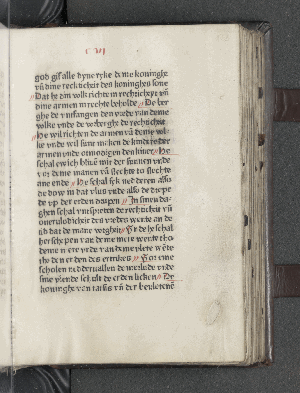 c vii
god gif alle dyne ryke deme koninghe
vñ dine rechticheit des koninghes sone
Dat he din volk richte in rechticheyt vñ
dine armen in rechte beholde De ber
ghe de vntfangen den vrede van deme
volke vnde de
He wil richten de armen vñ deme vol
ke vnde wil sunt maken de kindere der
armen vnde otmodigen den He
schal ewich bliuē mit der sunnen vnde
vor deme manen vñ slechte to slechte
ane ende He schal sik nedderen also
de dow in dat vlus vnde also de drepe
de vp der erden In sinen da
ghen schal vntspreten de rechticheit vñ
ouerulodicheit des vredes wente an de
tid dat de mane Vñ he schal
herschopen van deme mere wente tho
deme mere vnde van deme vlete wēte
tho den enden des ertrikes Vor eme
scholen neddervallen de vnde
sine viende schollen de erden licken De
koninghe van tarsis vñ der